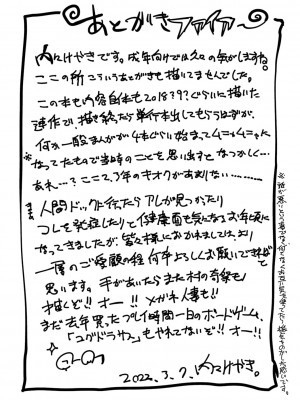 あとがきファイァー
内々けやきです。成年向けでは久々の気がしますね。
ここの所こういうあとがきも描いてませんでした。
この本も内容自体も2018?9?ぐらいに描いた
連作で描き終ったら単行本出してもらうはずが、
何か一般まんがが4本ぐらい始まってムニャムニャに
なってたもので当時のことを思い出すと なつかしく…
あれ…?ここ2、3年のキオクがあまりない………
まぁ人間ドックに行ったらアレが見つかったり
コレを発症したりと健康面も気になるお年頃に
なってきましたが、皆々様におかれましては、より
一層のご愛顧の程 何卒よろしくお願いできればと
思います。手があいたらまた村の奇祭も
描くぞ!! オー!! メガネ人妻も!!
まだ去年買ったプレイ時間一日のボードゲーム、
「ユグドラサス」もやれてないぞ!! オー!!
2022.3.7. 内々けやき。